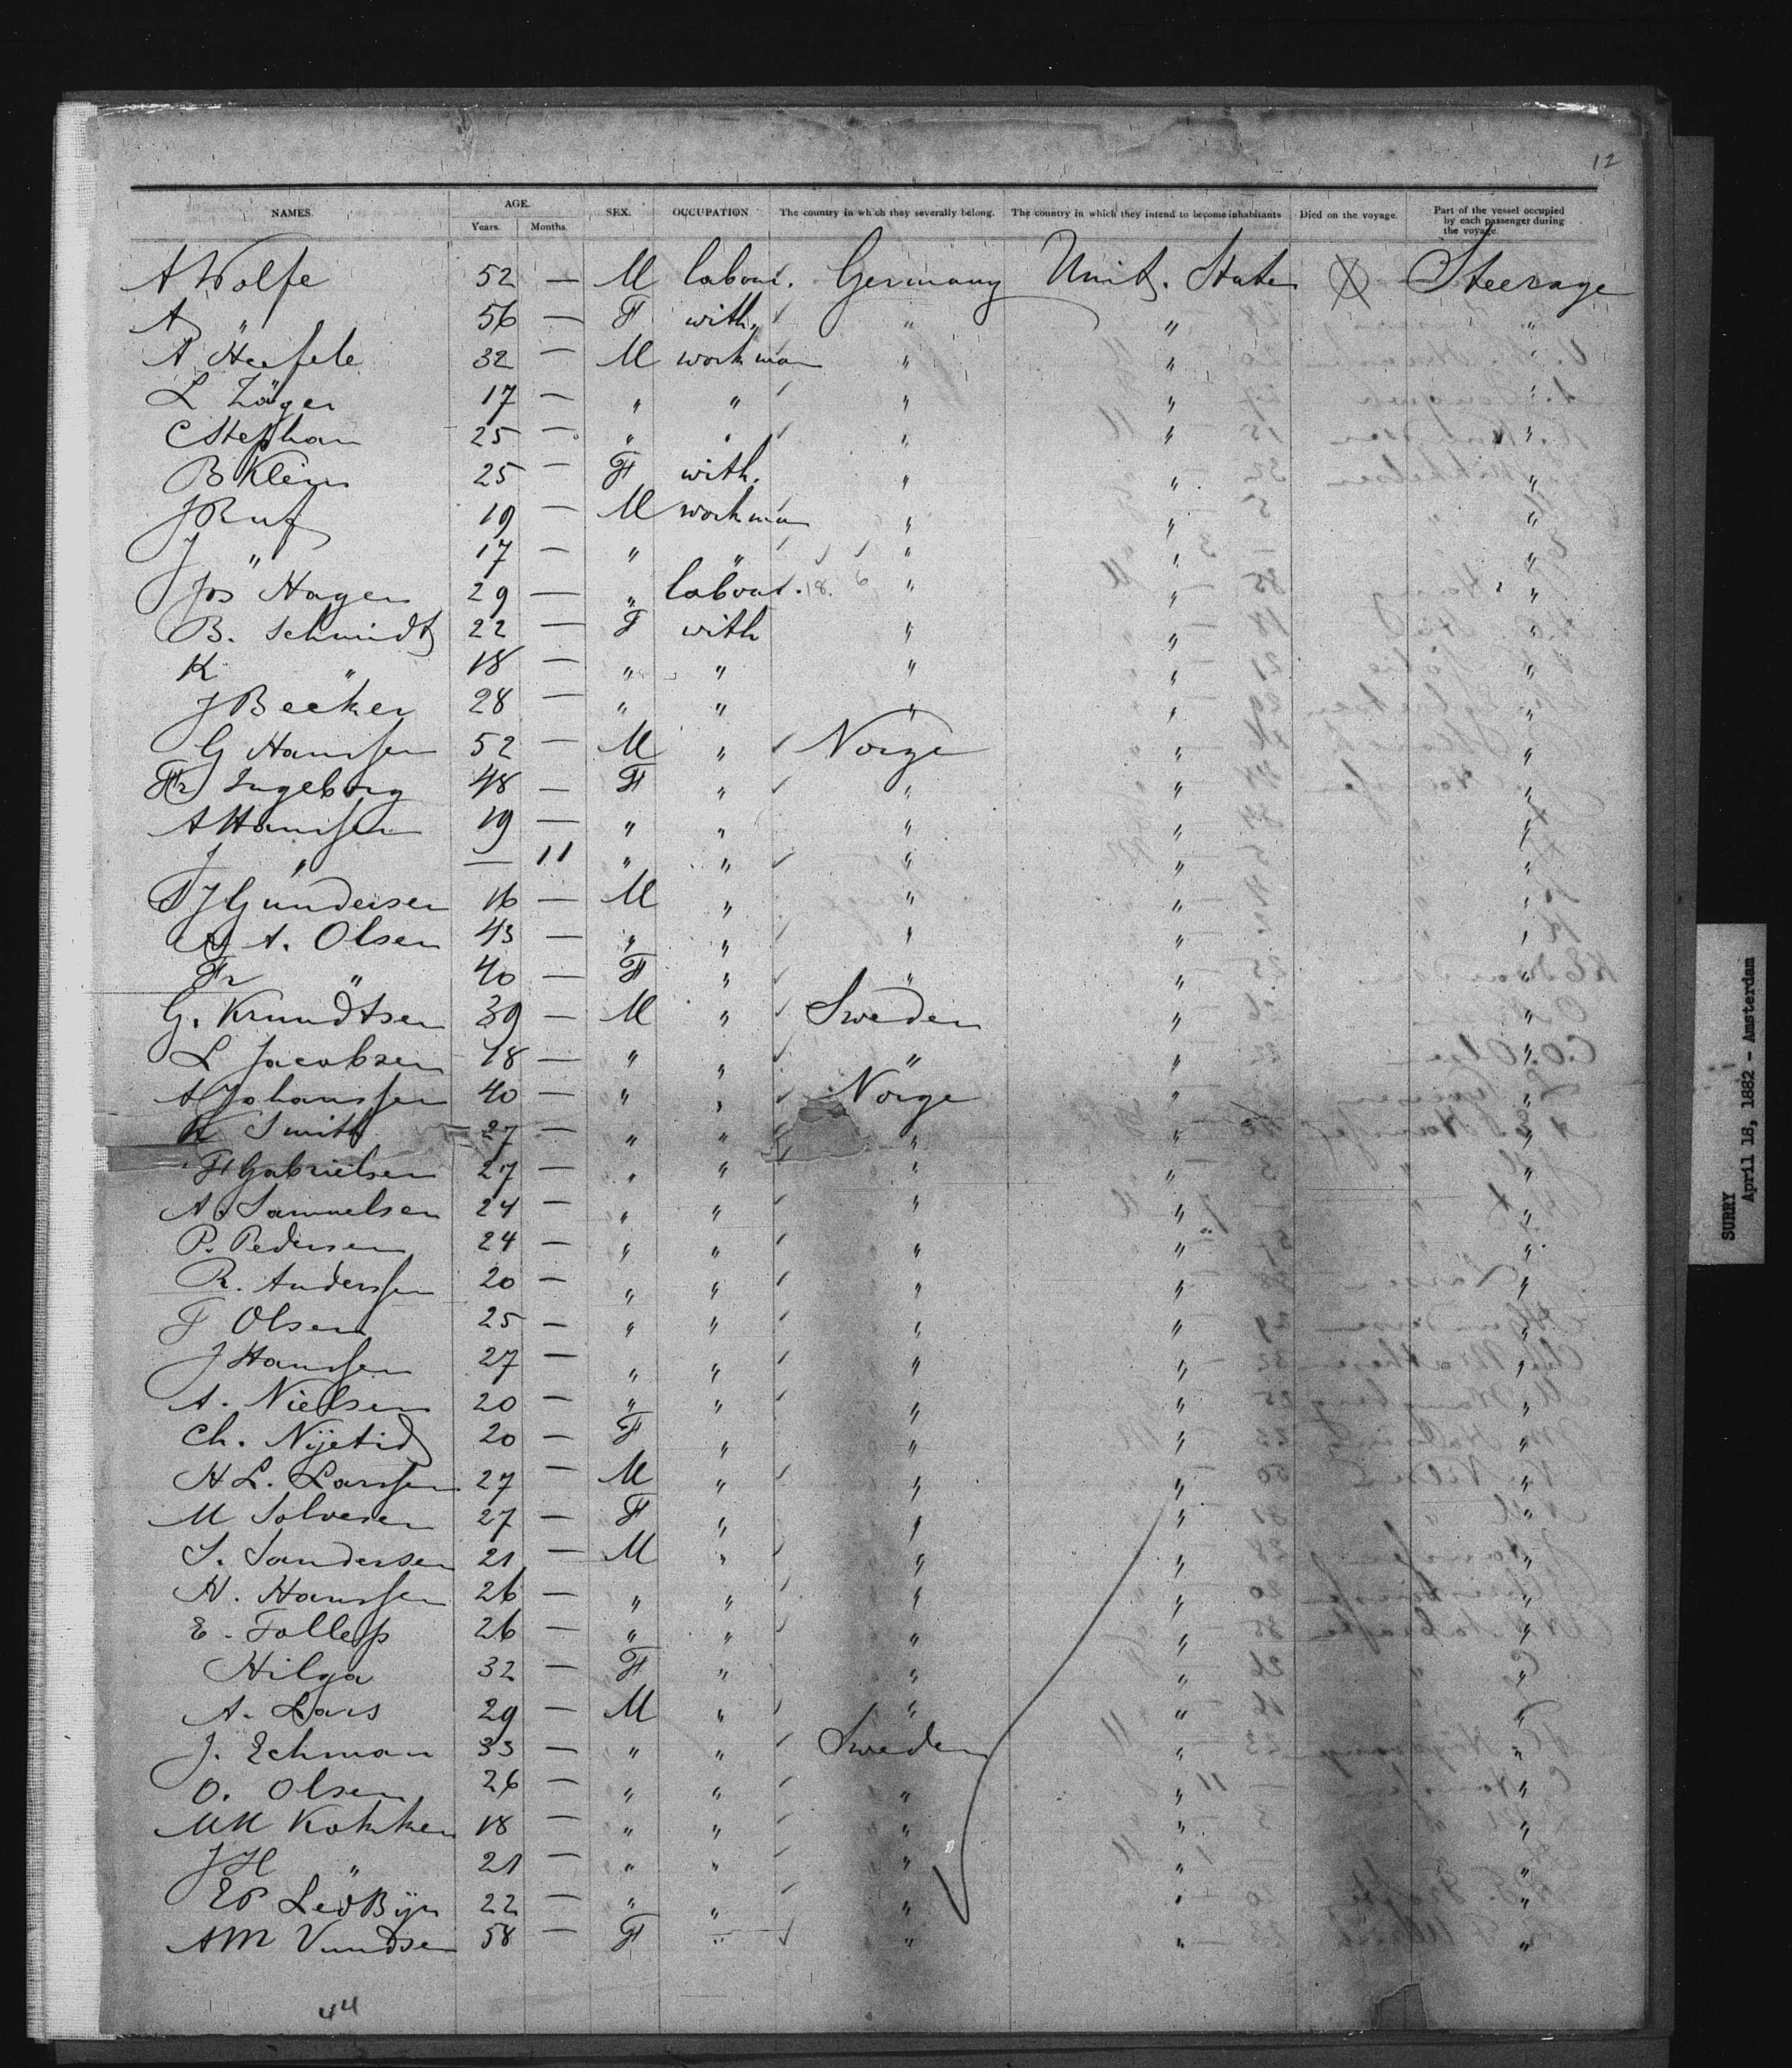 12
NAMES. AGE. Years. Months. SEX. OCCUPATION. The country in which they severally belong. The country in which they intend to become inhabitants Died on the voyage. Part of the vessel occupied by each passenger during the voyage.
A Wolfe 52 — M labour. Germany Unit. States Steerage
A " 56 — F with. " " "
A Hesfele 32 — M workman " " "
L Zäger 17 — " " " " "
C Stephan 25 — " " " " "
B Klein 25 — F with. " " "
J Ruf 19 — M workman " " "
J " 17 — " " " " "
Jos Hagen 29 — " labour. 18. 6 " " "
B. Schmidt 22 — F with " " "
K " 18 — " " " " "
J Becker 28 — " " " " "
G Hanssen 52 — M " Norge " "
Fr Ingeborg 48 — F " " " "
A Hanssen 19 — " " " " "
J " — 11 " " " " "
J Gundersen 16 — M " " " "
A. Olsen 43 — " " " " "
Fr " 40 — F " " " "
G. Knundtsen 39 — M " Sweden " "
L Jacobsen 18 — " " " " "
A Johanssen 40 — " " Norge " "
K Smith — 27 — " " " " "
F Gabrielsen 27 — " " " " "
A. Samuelsen 24 — " " " " "
P. Pedersen 24 — " " " " "
R. Anderssen 20 — " " " " "
F Olsen 25 — " " " " "
J Hanssen 27 — " " " " "
A. Nielsen 20 — " " " " "
Ch. Nijetid 20 — F " " " "
H L. Larssen 27 — M " " " "
M Solvesen 27 — F " " " "
S. Sandersen 21 — M " " " "
H. Hanssen 26 — " " " " "
E. Folless 26 — " " " " "
Hilga 32 — F " " " "
A. Lars 29 — M " " " "
J. Echman 33 — " " Sweden " "
O. Olsen 26 — " " " " "
MM Kokken 18 — " " " " "
JH " 21 — " " " " "
EP LedBijn 22 — " " " " "
AM Vundsen 58 — F " " " "
44
SURRY
April 18, 1882 - Amsterdam